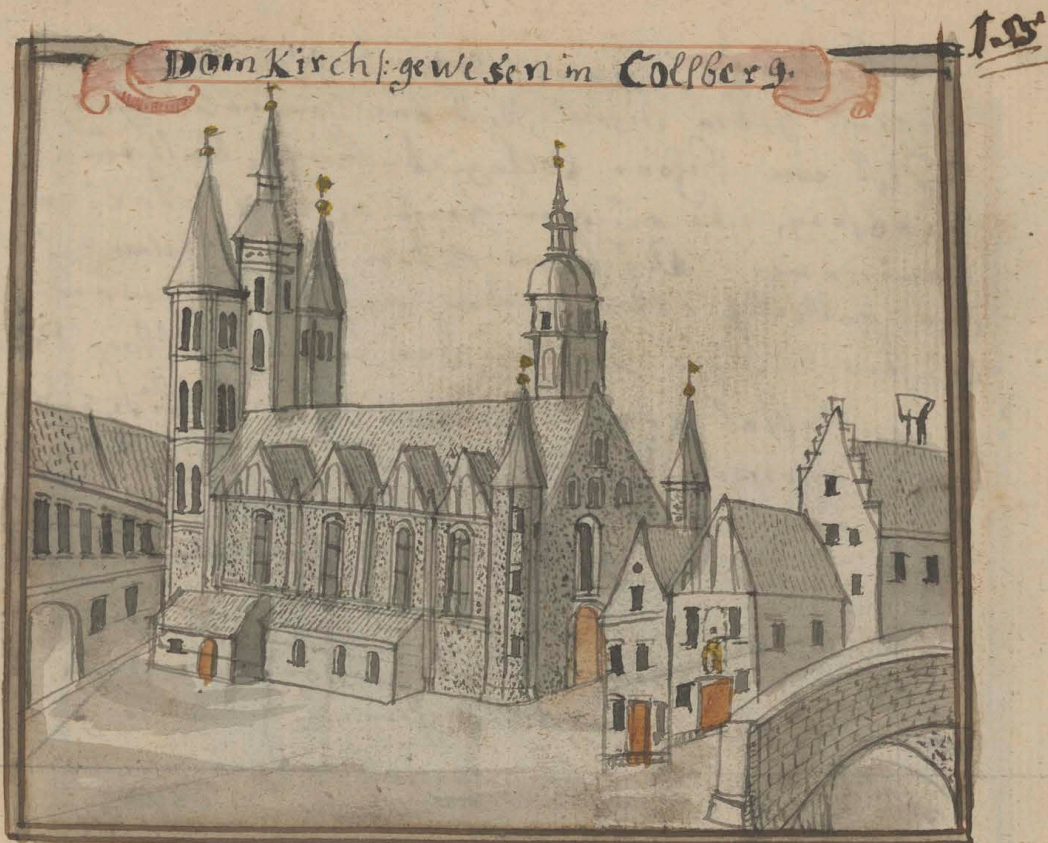 Dom Kirch /: gewesen in Collberg.